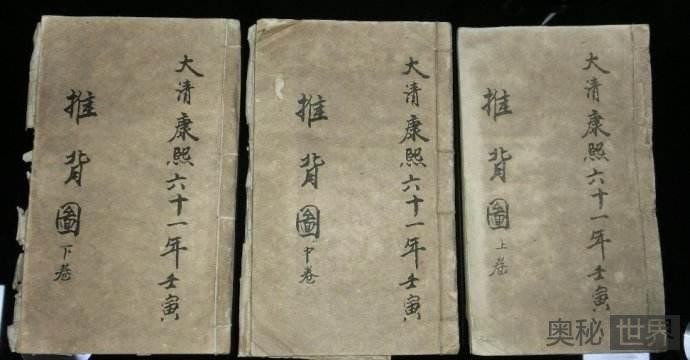 大清康熙六十一年壬寅
推背圖上卷
大清康熙六十一年壬寅
推背圖中卷
大清康熙六十一年壬寅
推背圖下卷
奥秘世界